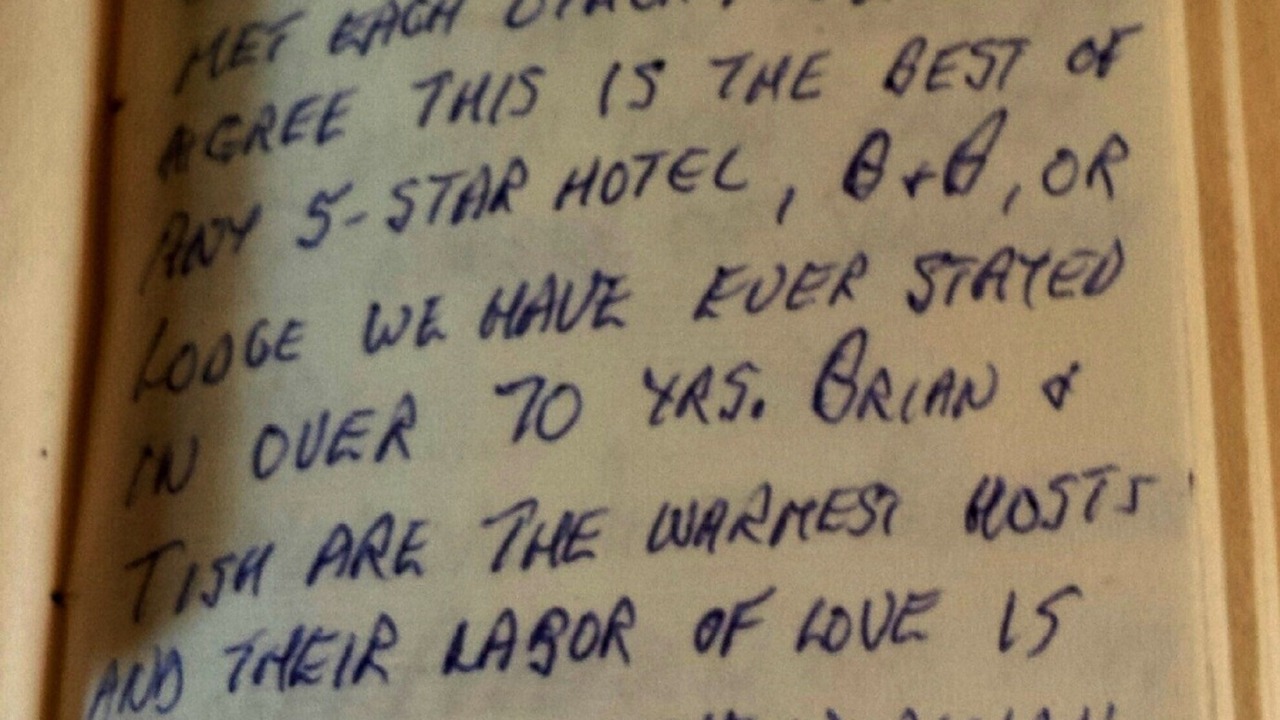 MET EACH OTHER,
AGREE THIS IS THE BEST OF
ANY 5-STAR HOTEL, B+B, OR
LODGE WE HAVE EVER STAYED
IN OVER 70 YRS. BRIAN &
TISH ARE THE WARMEST HOSTS
AND THEIR LABOR OF LOVE IS